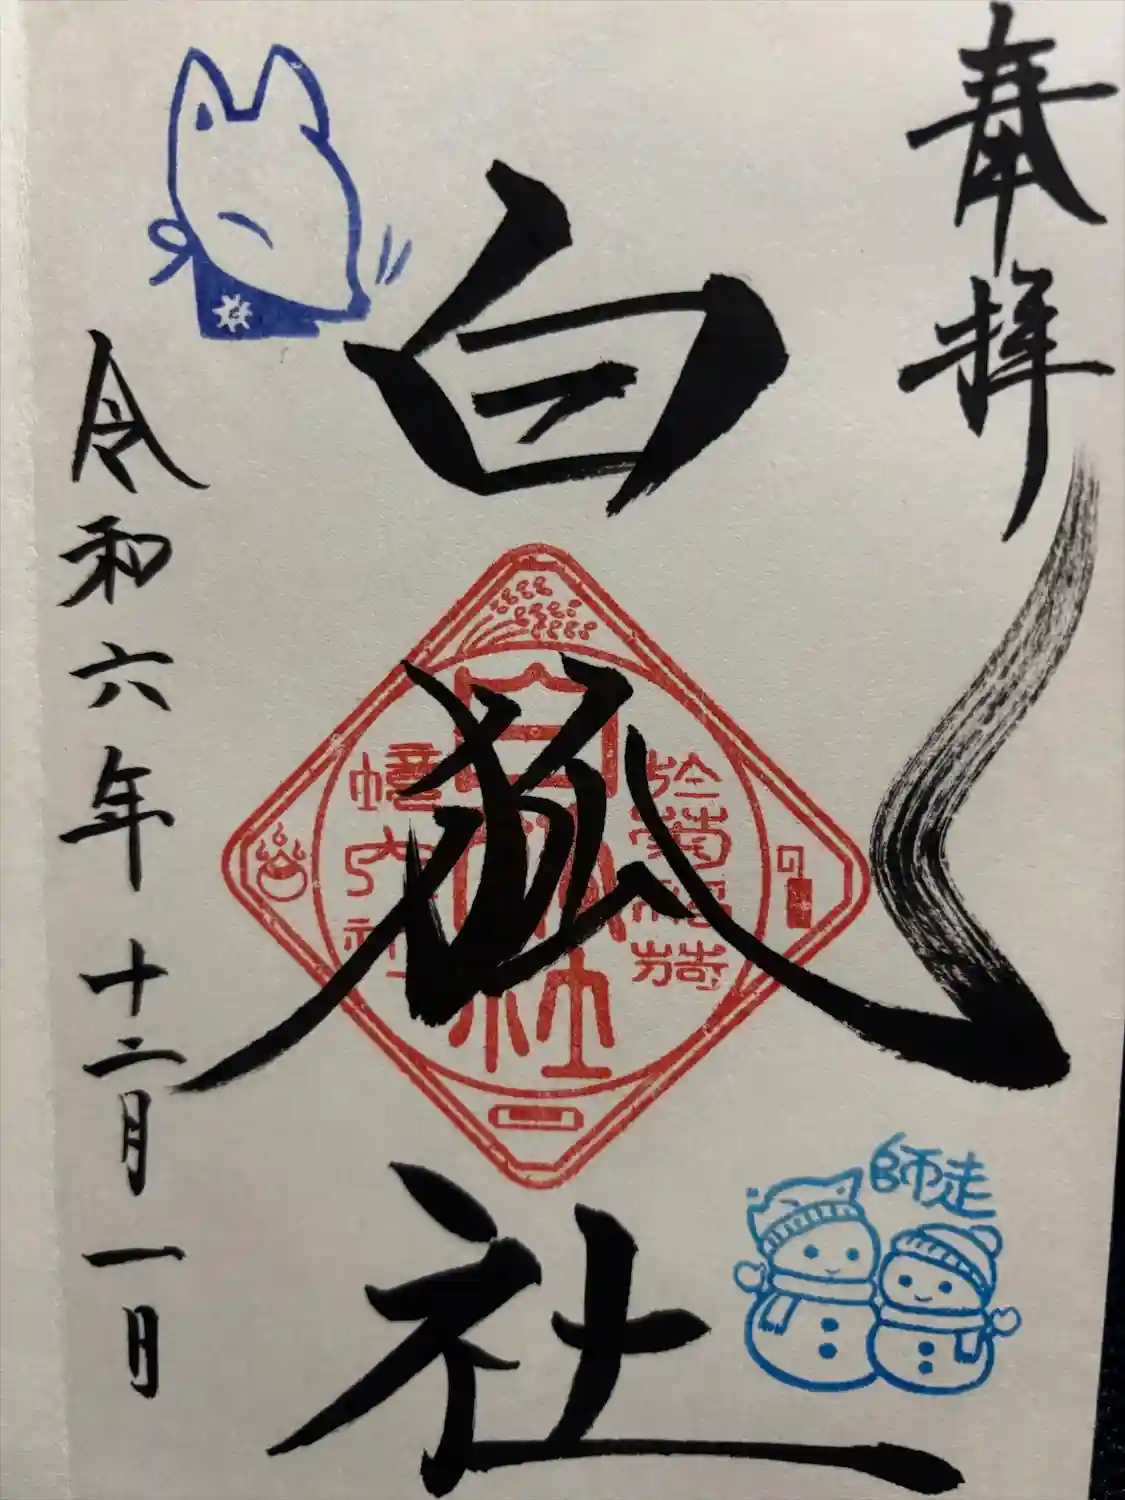 奉拝
白狐社
令和六年十二月一日
白狐社
師走